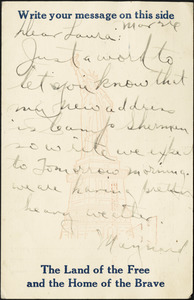 Write your message on this side
Mar 24
Dear Laura:
Just a word to
let you know that
my new address
is Camp Sherman
so write we expect
to tomorrow morning.
we are having
heavy weather.
The Land of the Free
and the Home of the Brave